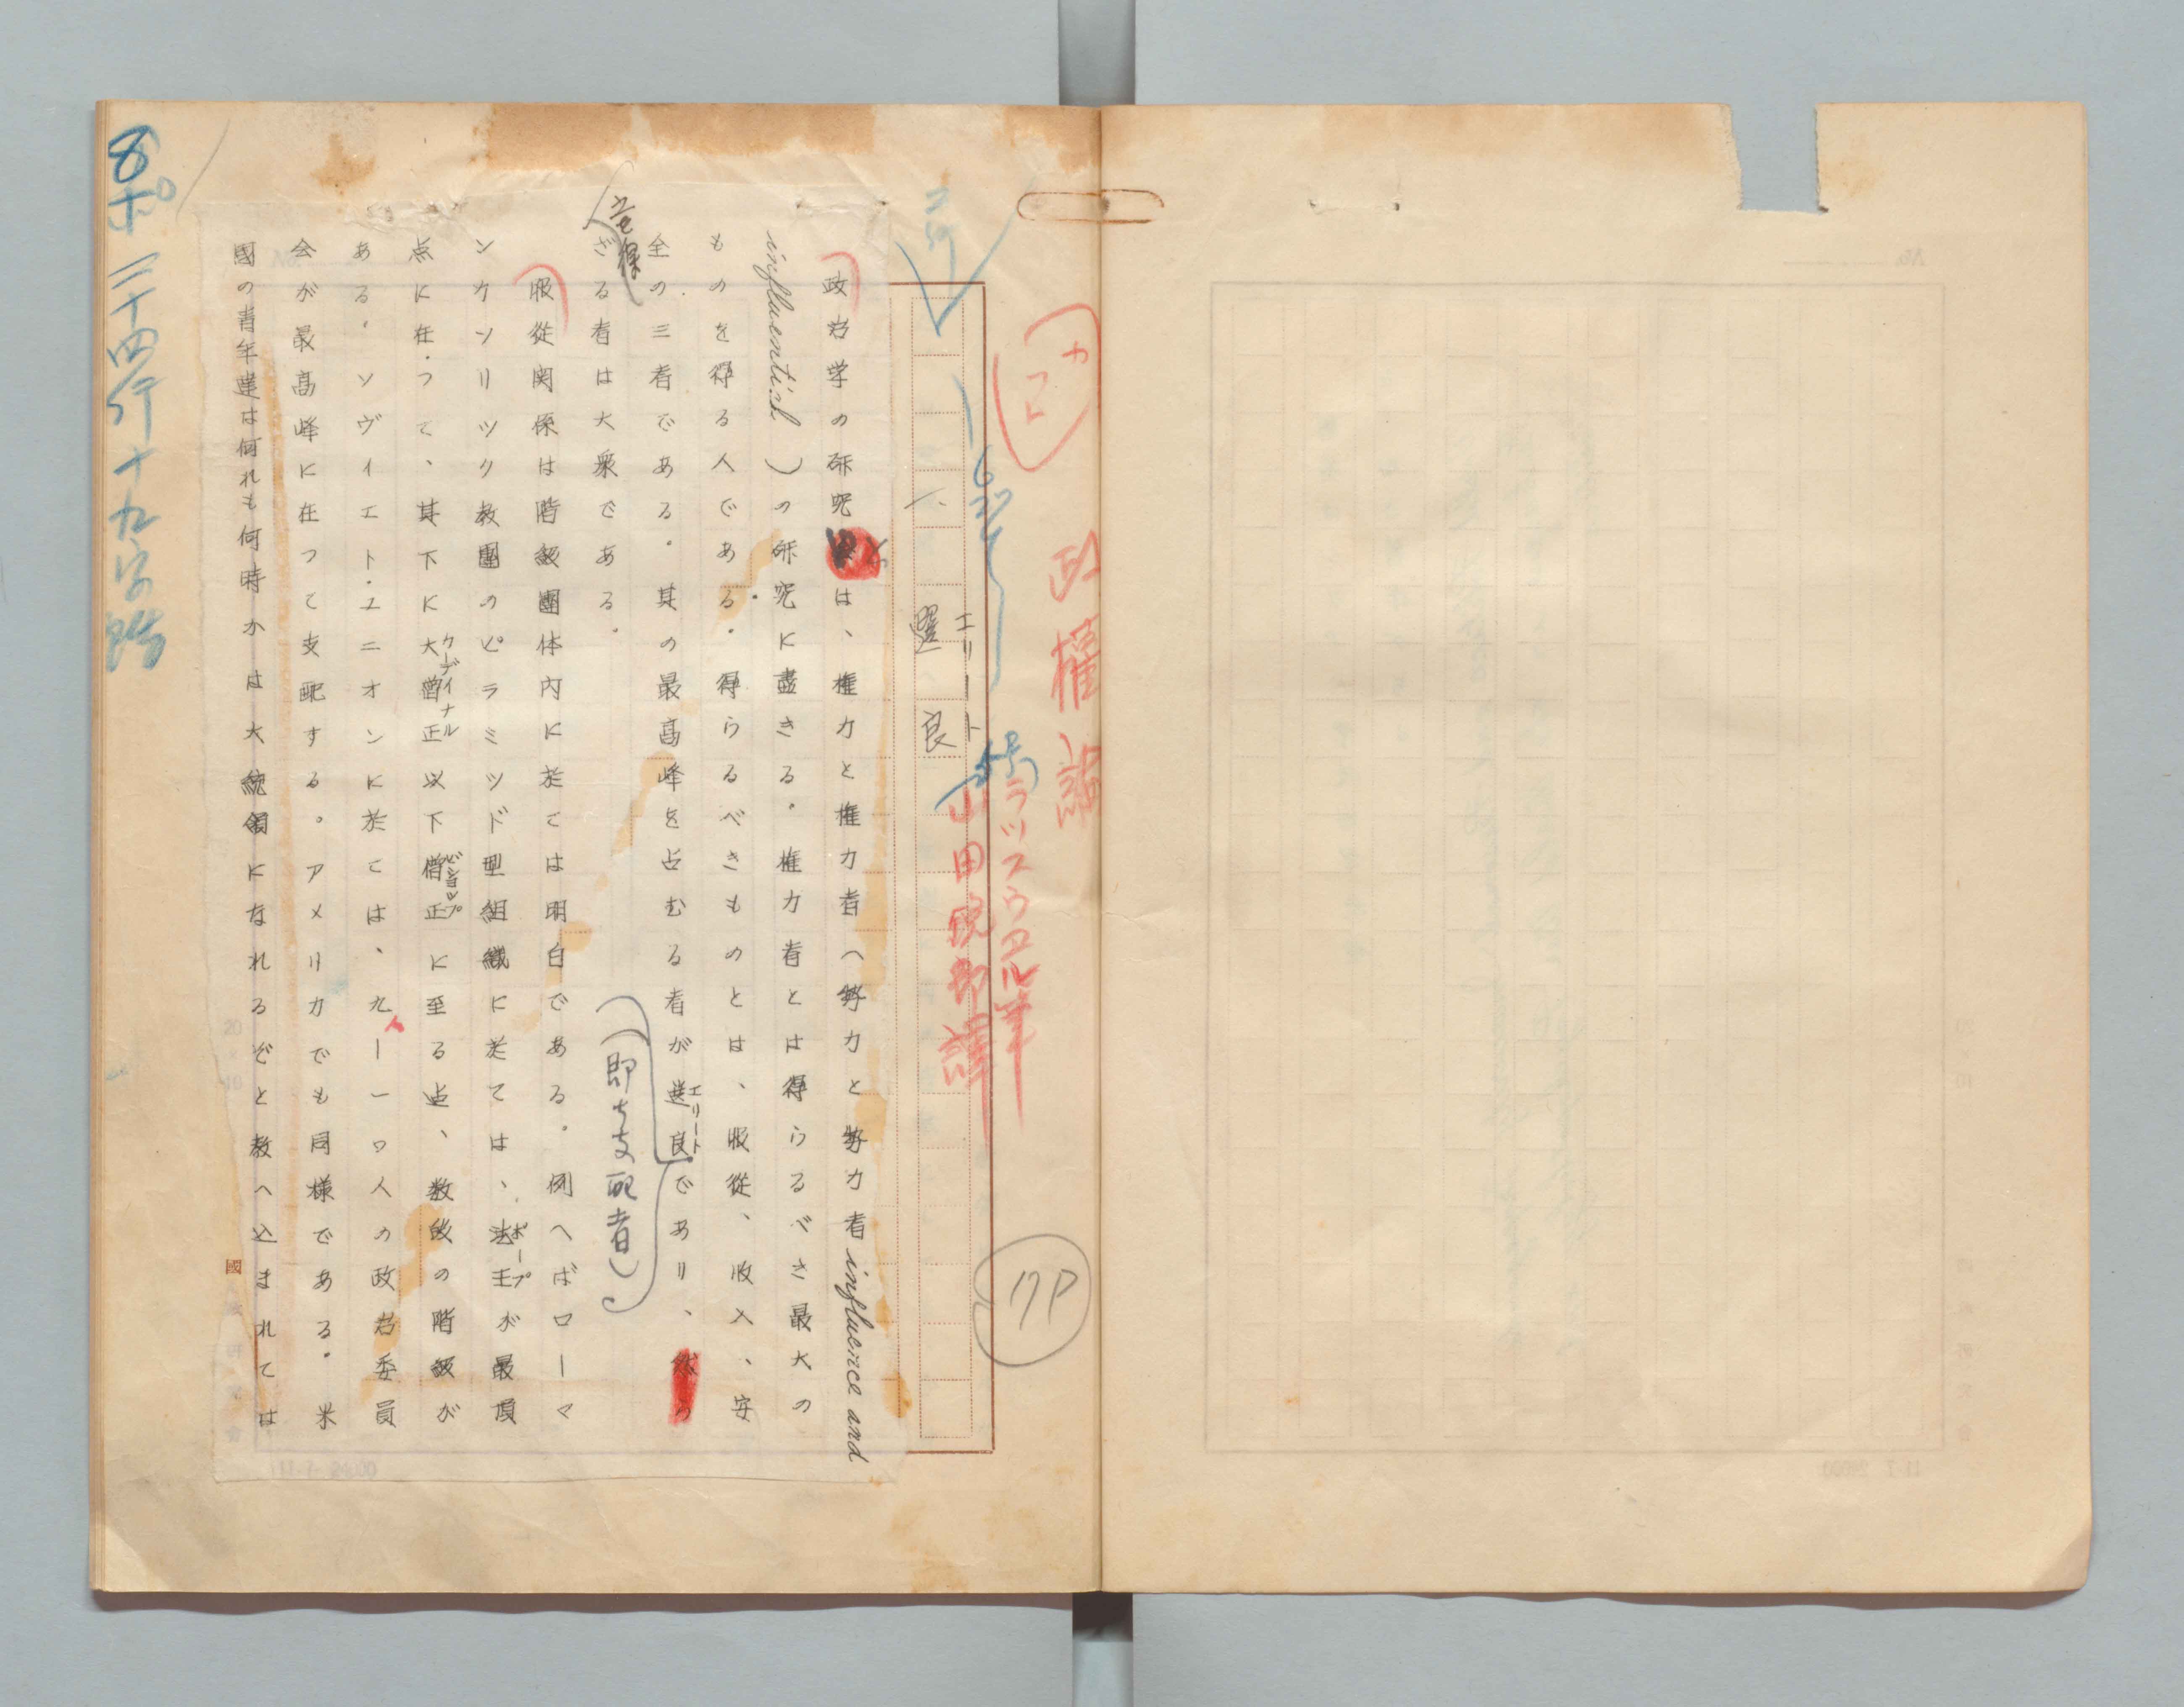 政權論
ラツスウヱル著
山田鋭郎譯
17P
一、選良
エリート
政治学の研究は、権力と権力者(勢力と勢力者 influence and
influential)の研究に盡きる。権力者とは得らるべき最大の
ものを得る人である。得らるべきものとは、服從、收入、安
全の三者である。其の最高峰を占むる者が選良であり、然ら
エリート
(即ち支配者)
ざる者は大衆である。
服從関係は階級團体内に於ては明白である。例へばローマ
ンカソリツク教團のピラミツド型組織に於ては、法王が最頂
ポープ
点に在つて、其下に大僧正以下僧正に至る迄、数段の階級が
カーディナル
ビショップ
ある。ソヴイエト・ユニオンに於ては、九—一〇人の政治委員
会が最高峰に在つて支配する。アメリカでも同様である。米
國の青年達は何れも何時かは大統領になれるぞと教へ込まれては
8ポ 二十四行十九字詰
20
10
11.7. 24000